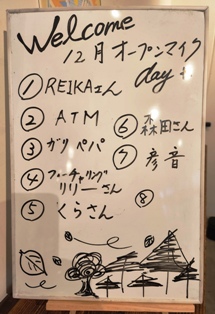 Welcome
12月オープンマイク
day
① REIKAさん
② ATM
③ ガリ ペパ
④ フューチャリング
リリーさん
⑤ くらさん
⑥ 森田さん
⑦ 彦音
⑧